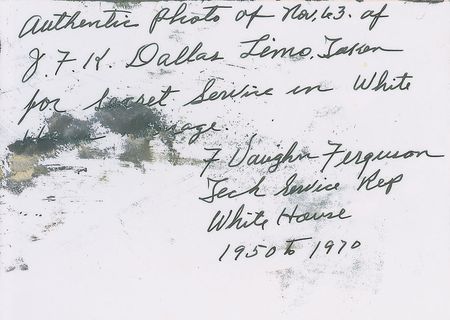 Authentic Photo of Nov. 63. of
J. F. K. Dallas Limo. Taken
for Secret Service in White
F Vaughn Ferguson
Tech Service Rep
White House
1950 to 1970